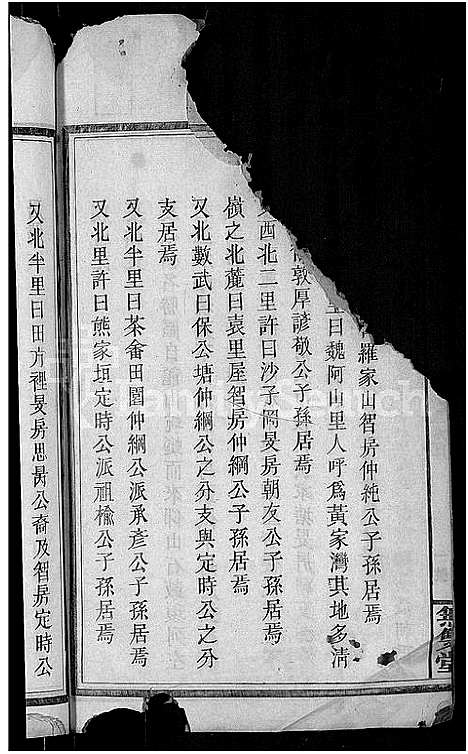 羅家山智房仲純公子孫居焉
里曰魏阿山里人呼爲黃家灣其地多清
敦厚諺敬公子孫居焉
又西北二里許曰沙子岡旻房朝友公子孫居焉
嶺之北麓曰袁里屋智房仲綱公子孫居焉
又北數武曰保公塘仲綱公之分支與定時公之分
支居焉
又北半里曰茶畬田園仲綱公派承彥公子孫居焉
又北里許曰熊家垣定時公派祖檢公子孫居焉
又北半里曰田方裡旻房思昺公裔及智房定時公